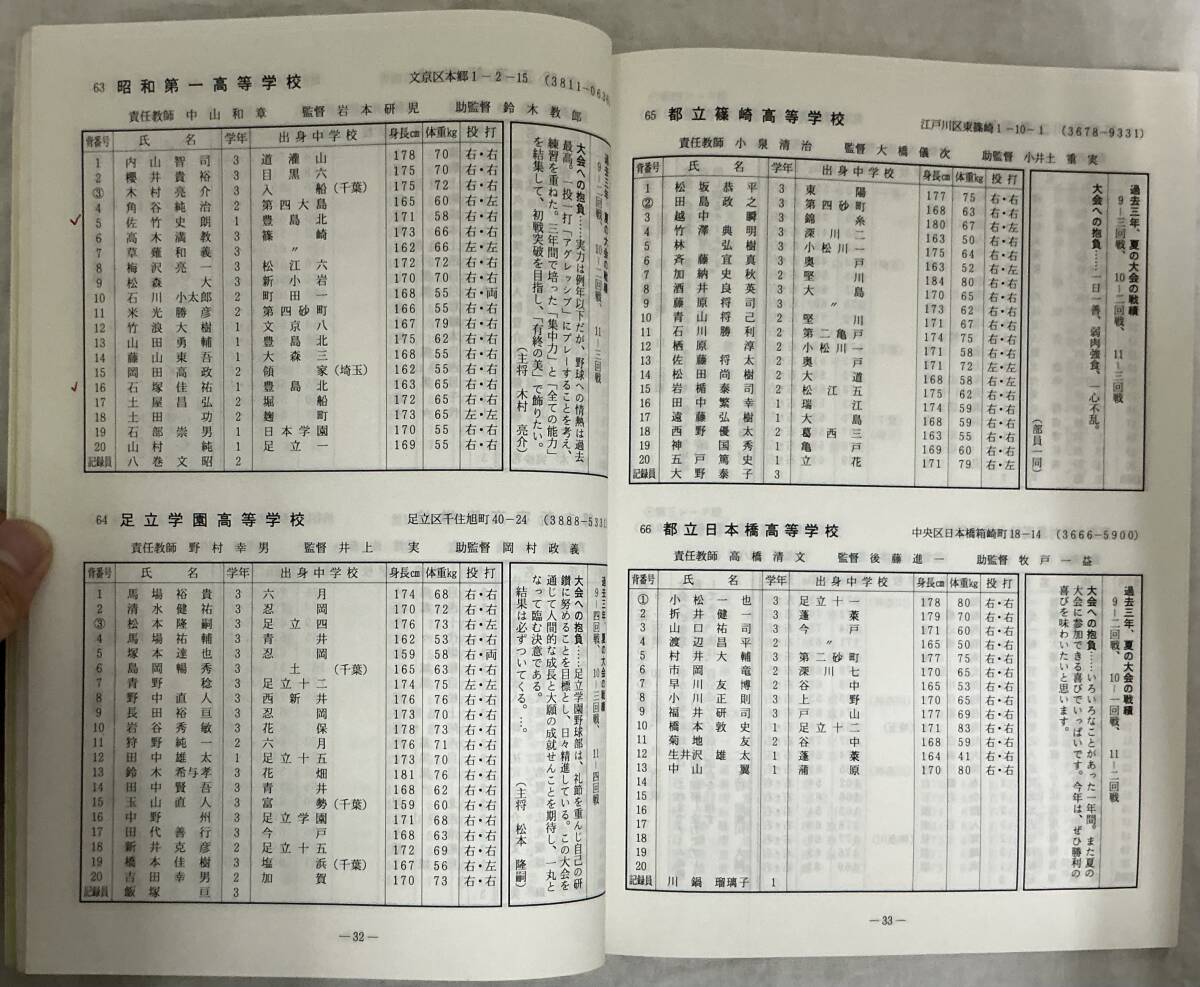 63 昭和第一高等学校 文京区本郷1-2-15
責任教師 中山和章 監督 岩本研児 助監督 鈴木教郎
背番号 氏名 学年 出身中学校 身長cm 体重kg 投打
1 内山智司 3 道灌山 178 70 右・右
2 櫻井貴裕 3 目黒六 175 70 右・右
③ 木村亮介 3 入船(千葉) 175 72 右・右
4 角谷純治 2 第四大島 165 60 右・左
5 佐竹史朗 1 豊島北 171 58 右・右
6 高木満教 3 篠崎 173 66 右・右
7 草薙和義 3 〃 162 66 左・左
8 梅沢亮一 3 松江六 172 72 右・右
9 松森大 3 新小岩 170 70 右・右
10 石川小太郎 2 町田一 168 55 右・両
11 米光勝彦 2 第四砂町 166 55 右・右
12 竹浪大樹 1 文京八 167 79 右・右
13 山田勇輔 1 豊島北 175 62 右・右
14 藤山東吾 1 大森三 168 55 右・右
15 岡田高政 2 領家(埼玉) 162 55 右・右
16 石塚佳祐 1 豊島北 163 65 右・右
17 土屋昌弘 2 堀船 172 65 右・右
18 土田功 2 麹町 173 65 左・左
19 石部崇男 1 日本学園 170 55 右・右
20 山村純 1 足立一 169 55 右・右
記録員 八巻文昭 2
過去三年、夏の大会の戦績
9-二回戦、10-二回戦、11-三回戦
大会への抱負……実力は例年以下だが、野球への情熱は過去
最高。一投一打「アグレッシブ」にプレーすることを考え、
練習を重ねた。三年間で培った「集中力」と「全ての能力」
を結集して、初戦突破を目指し、「有終の美」で飾りたい。
(主将 木村 亮介)
64 足立学園高等学校 足立区千住旭町40-24
責任教師 野村幸男 監督 井上実 助監督 岡村政義
背番号 氏名 学年 出身中学校 身長cm 体重kg 投打
1 馬場裕貴 3 六月 174 68 右・右
2 清水健祐 3 忍岡 170 72 右・右
③ 松本隆嗣 3 足立四 176 73 右・左
4 馬場祐輔 3 青井 162 53 右・右
5 塚本達也 3 忍岡 159 58 右・両
6 島岡暢秀 3 土(千葉) 165 63 右・右
7 青野稔 3 足立十二 174 75 左・左
8 野中直人 3 西新井 176 76 右・右
9 長田裕亘 3 忍岡 173 70 右・右
10 岩谷秀敏 3 花保 178 73 右・右
11 狩野純一 2 六月 176 71 右・右
12 田中雄太 1 足立十五 173 70 右・右
13 鈴木希与孝 3 花畑 181 76 右・右
14 田中賢吾 3 青井 168 62 右・右
15 玉山直人 3 富勢(千葉) 159 60 右・右
16 中野州 3 足立学園 171 68 右・右
17 田代善行 3 今戸 168 63 右・右
18 新井克彦 2 足立十五 172 69 右・右
19 橋本佳樹 3 塩浜(千葉) 167 56 右・左
20 吉田幸男 2 加賀 170 73 右・右
記録員 飯塚亘 3
過去三年、夏の大会の戦績
9-四回戦、10-三回戦、11-四回戦
大会への抱負……足立学園野球部は、礼節を重んじ自己の研
鑽に努めることを目標とし、日々精進している。この大会を
通じて人間的な成長と大願の成就せんことを期待し、一丸と
なって臨む決意である。
結果は必ずついてくる。…。
(主将 松本 隆嗣)
—32—
65 都立篠崎高等学校 江戸川区東篠崎1-10-1 (3678-9331)
責任教師 小泉清治 監督 大橋儀次 助監督 小井土重実
背番号 氏名 学年 出身中学校 身長cm 体重kg 投打
1 松坂恭平 3 東陽 177 75 右・右
② 田島政之 3 第四砂町 168 63 右・右
3 越中瞬 3 錦糸 180 67 右・左
4 竹澤典明 3 深川二 163 50 右・右
5 林弘樹 3 小松川一 175 64 右・右
6 斉藤宜真 3 奥戸 163 52 右・左
7 加納史秋 2 堅川 184 80 右・右
8 酒井良英 3 大島 170 65 右・右
9 藤原将司 3 〃 173 62 右・右
10 青山将己 2 堅川 171 67 右・右
11 石川勝利 2 第二亀戸 174 75 右・右
12 栖原淳 2 小松川一 171 58 右・右
13 佐藤将太 2 奥戸 171 72 左・左
14 松田尚樹 2 大道 168 58 右・左
15 岩楯泰司 2 松江五 175 62 右・右
16 田中繁幸 1 瑞江 174 59 右・右
17 遠藤弘樹 1 大島 168 59 右・右
18 西野優太 2 葛西三 163 55 右・右
19 神国秀 1 亀戸 169 60 右・右
20 五戸篤史 1 立花 171 79 右・左
記録員 大野泰子 3
過去三年、夏の大会の戦績
9-三回戦、10-二回戦、11-三回戦
大会への抱負……一日一善、弱肉強食、一心不乱。
(部員一同)
66 都立日本橋高等学校 中央区日本橋箱崎町18-14 (3666-5900)
責任教師 高橋清文 監督 後藤進一 助監督 牧戸一益
背番号 氏名 学年 出身中学校 身長cm 体重kg 投打
① 小松一也 3 足立十一 178 80 右・右
2 折井健一 3 蓬莱 179 80 右・右
3 山口祐司 3 今戸 171 60 右・右
4 渡辺昌平 2 〃 165 50 右・右
5 村井大輔 3 第二砂町 177 75 右・右
6 市岡竜 2 深川七 170 65 右・右
7 早川友博 2 谷中 165 53 右・右
8 小川正則 3 上野 170 65 右・右
9 福井研司 3 戸山 177 69 右・右
10 橋本敦史 1 足立十二 171 83 右・右
11 菊地友 2 谷中 168 59 右・右
12 生井沢雄太 1 蓬莱 164 41 右・左
13 中山翼 1 蒲原 170 80 右・右
14
15
16
17
18
19
20
記録員 川鍋瑠璃子 1
過去三年、夏の大会の戦績
9-二回戦、10-一回戦、11-二回戦
大会への抱負……いろいろなことがあった一年間。また夏の
大会に参加できる喜びでいっぱいです。今年は、ぜひ勝利の
喜びを味わいたいと思います。
—33—